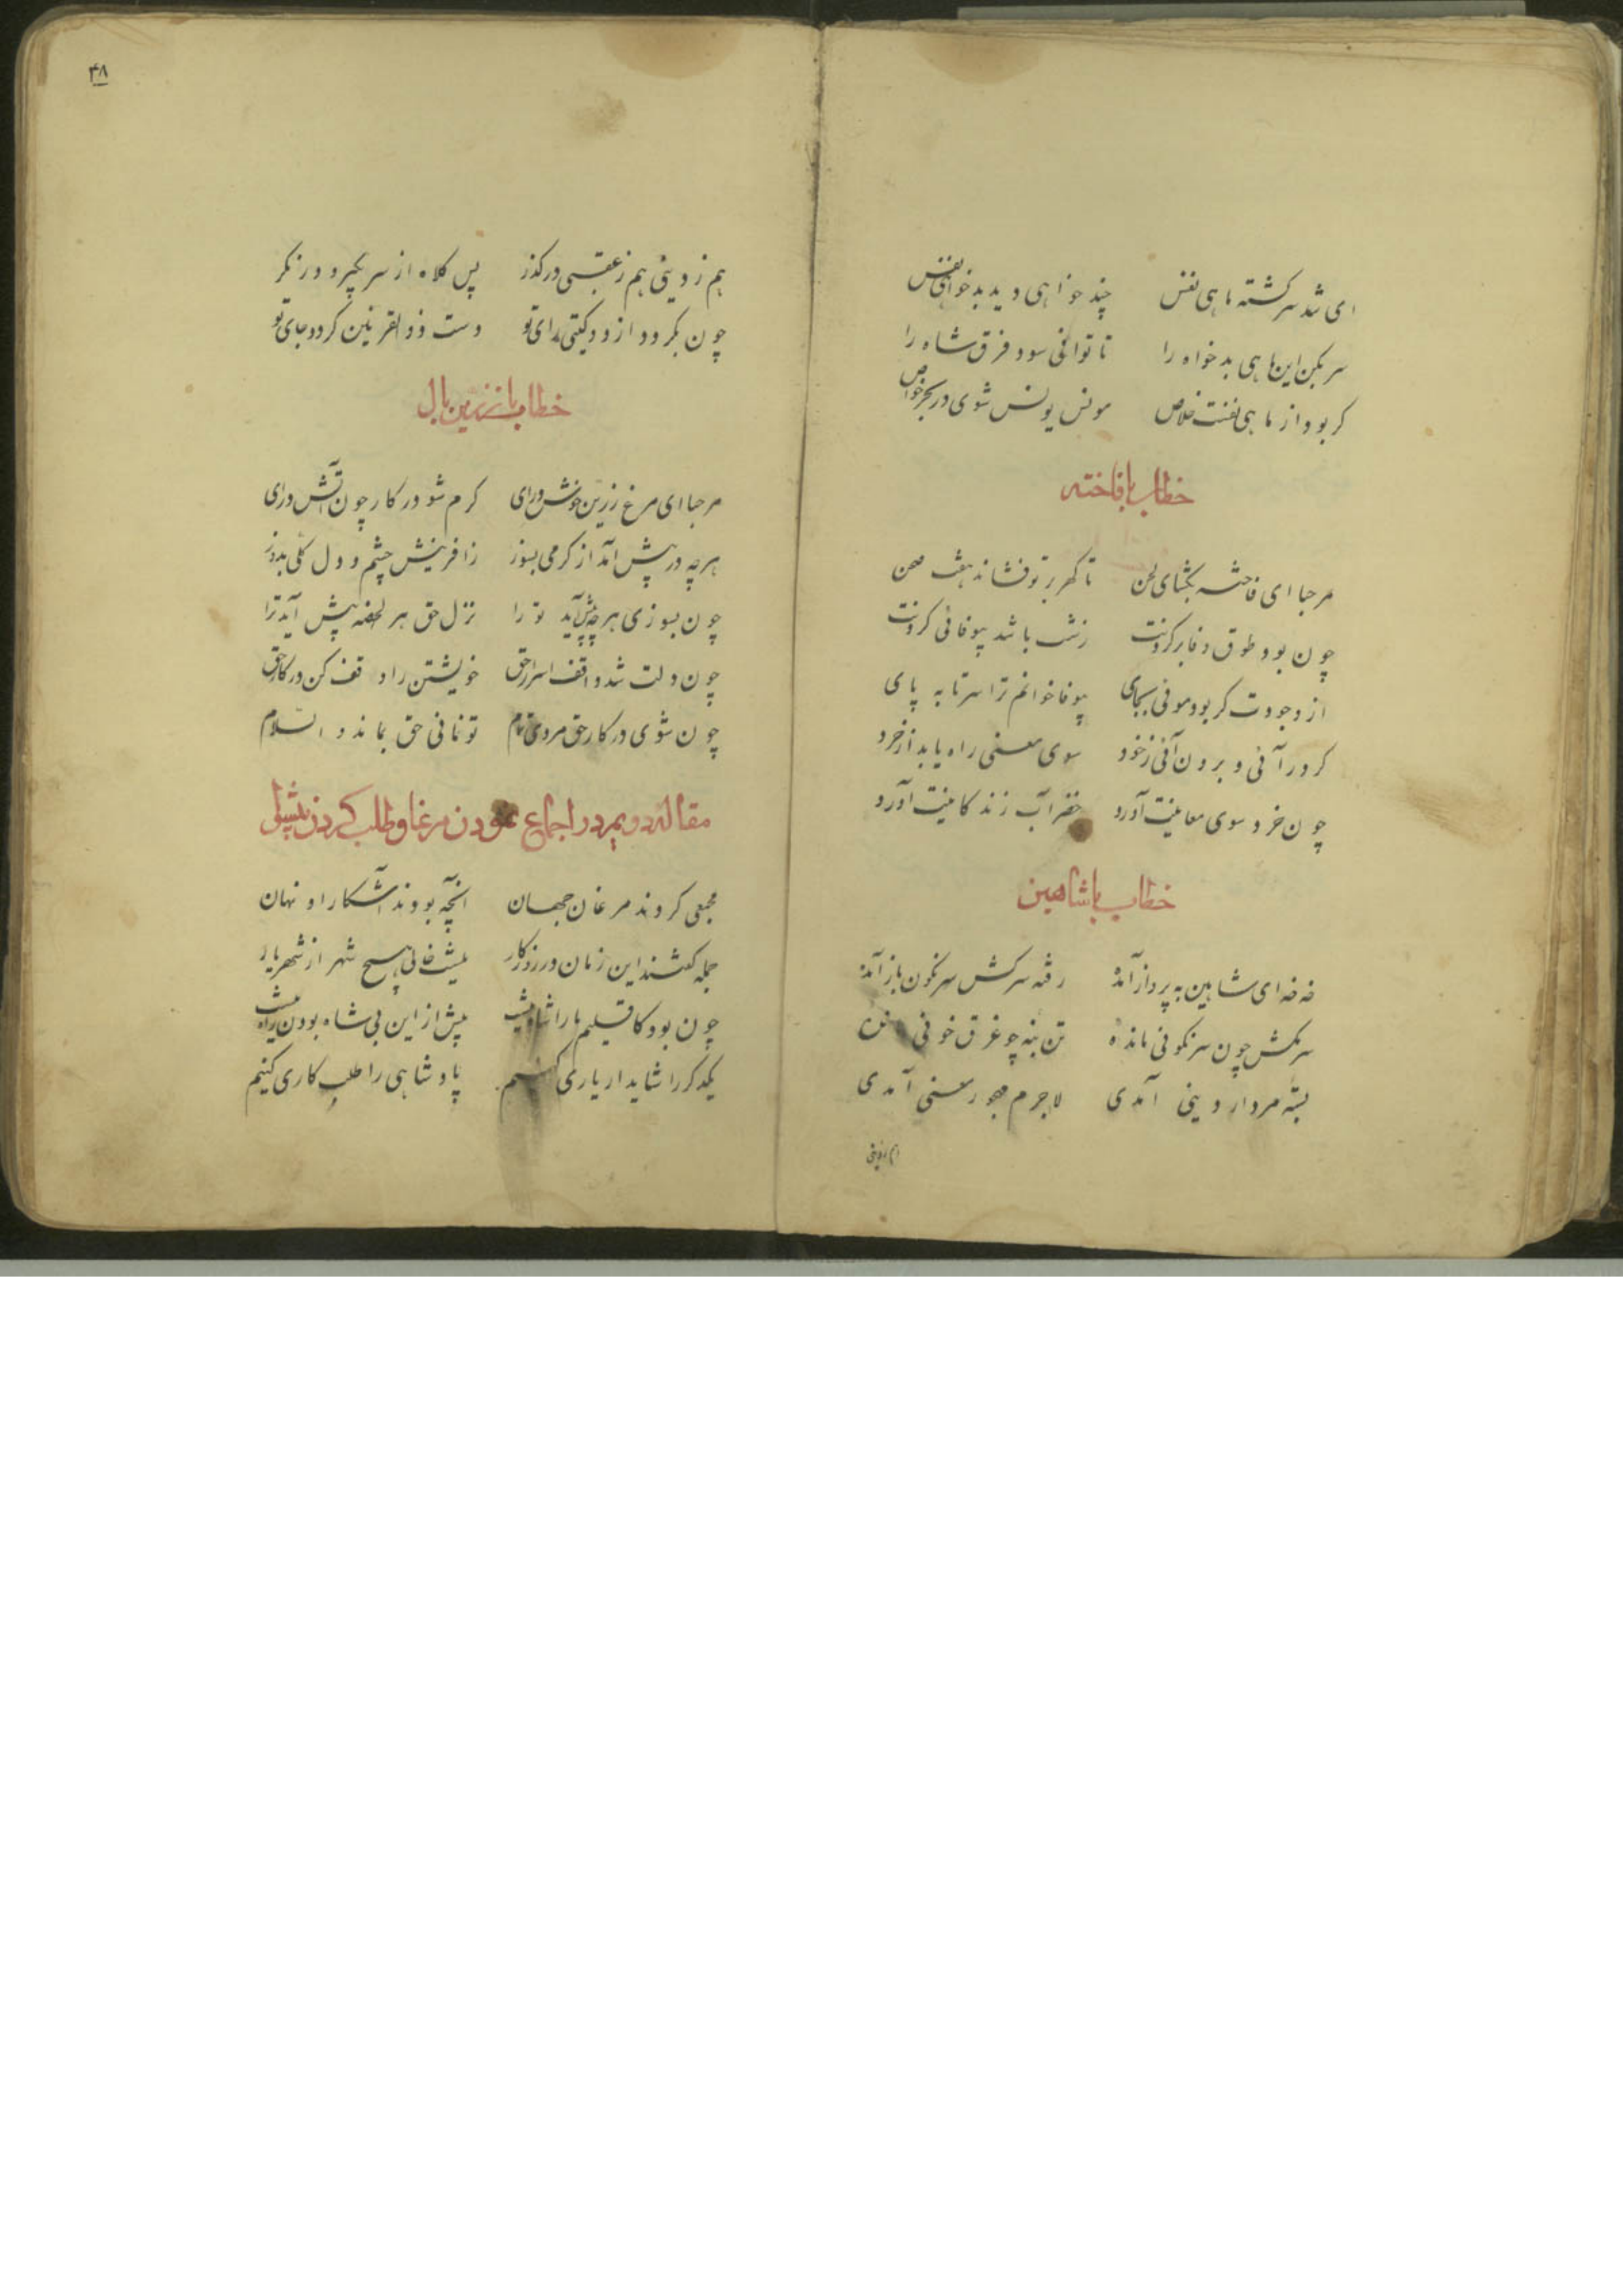 ای شده سرگشته ماهی نفس چند خواهی دید بدخواهی نفس
سر بکن این ماهی بدخواه را تا توانی سود فرق شاه را
گر بود از ماهی نفست خلاص مونس یونس شوی در بحر خاص
خطاب با فاخته
مرحبا ای فاخته بگشای لحن تا گهر بر تو فشاند هفت صحن
چون بود طوق وفا بر گردنت زشت باشد بیوفائی کردنت
از وجودت گر بود موئی بجای بیوفا خوانم ترا سر تا به پای
گر درآئی و برون آئی ز خود سوی معنی راه یابد از خرد
چون خرد سوی معانیت آورد خضر آب زندگانیت آورد
خطاب با شاهین
خه خه ای شاهین به پرواز آمده رفته سرکش سرنگون باز آمده
سرمکش چون سرنگونی مانده تن بنه چو غرق خونی مانده
بسته مردار دینی آمدی لاجرم مهجور معنی آمدی
هم ز دینی
۴۸
هم ز دینی هم ز عقبی درگذر پس کلاه از سر بگیر و درنگر
چون بگردد از دو گیتی رای تو دست ذوالقرنین گردد جای تو
خطاب با زرین بال
مرحبا ای مرغ زرین خوش درای گرم شو در کار چون آتش درای
هرچه در پیش آمد از گرمی بسوز ز آفرینش چشم و دل کلی بدوز
چون بسوزی هرچه پیش آید تو را نزل حق هر لحظه پیش آید ترا
چون دلت شد واقف اسرار حق خویشتن را وقف کن در کار حق
چون شوی در کار حق مردی تمام تو نمانی حق بماند و السلام
مقاله دویم در اجماع نمودن مرغان و طلب کردن پیشوا
مجمعی کردند مرغان جهان آنچه بودند آشکارا و نهان
جمله گفتند این زمان و روزگار نیست خالی هیچ شهر از شهریار
چون بود کاقلیم ما را شاه نیست بیش از این بی شاه بودن راه نیست
یکدگر را شاید ار یاری کنیم پادشاهی را طلب کاری کنیم